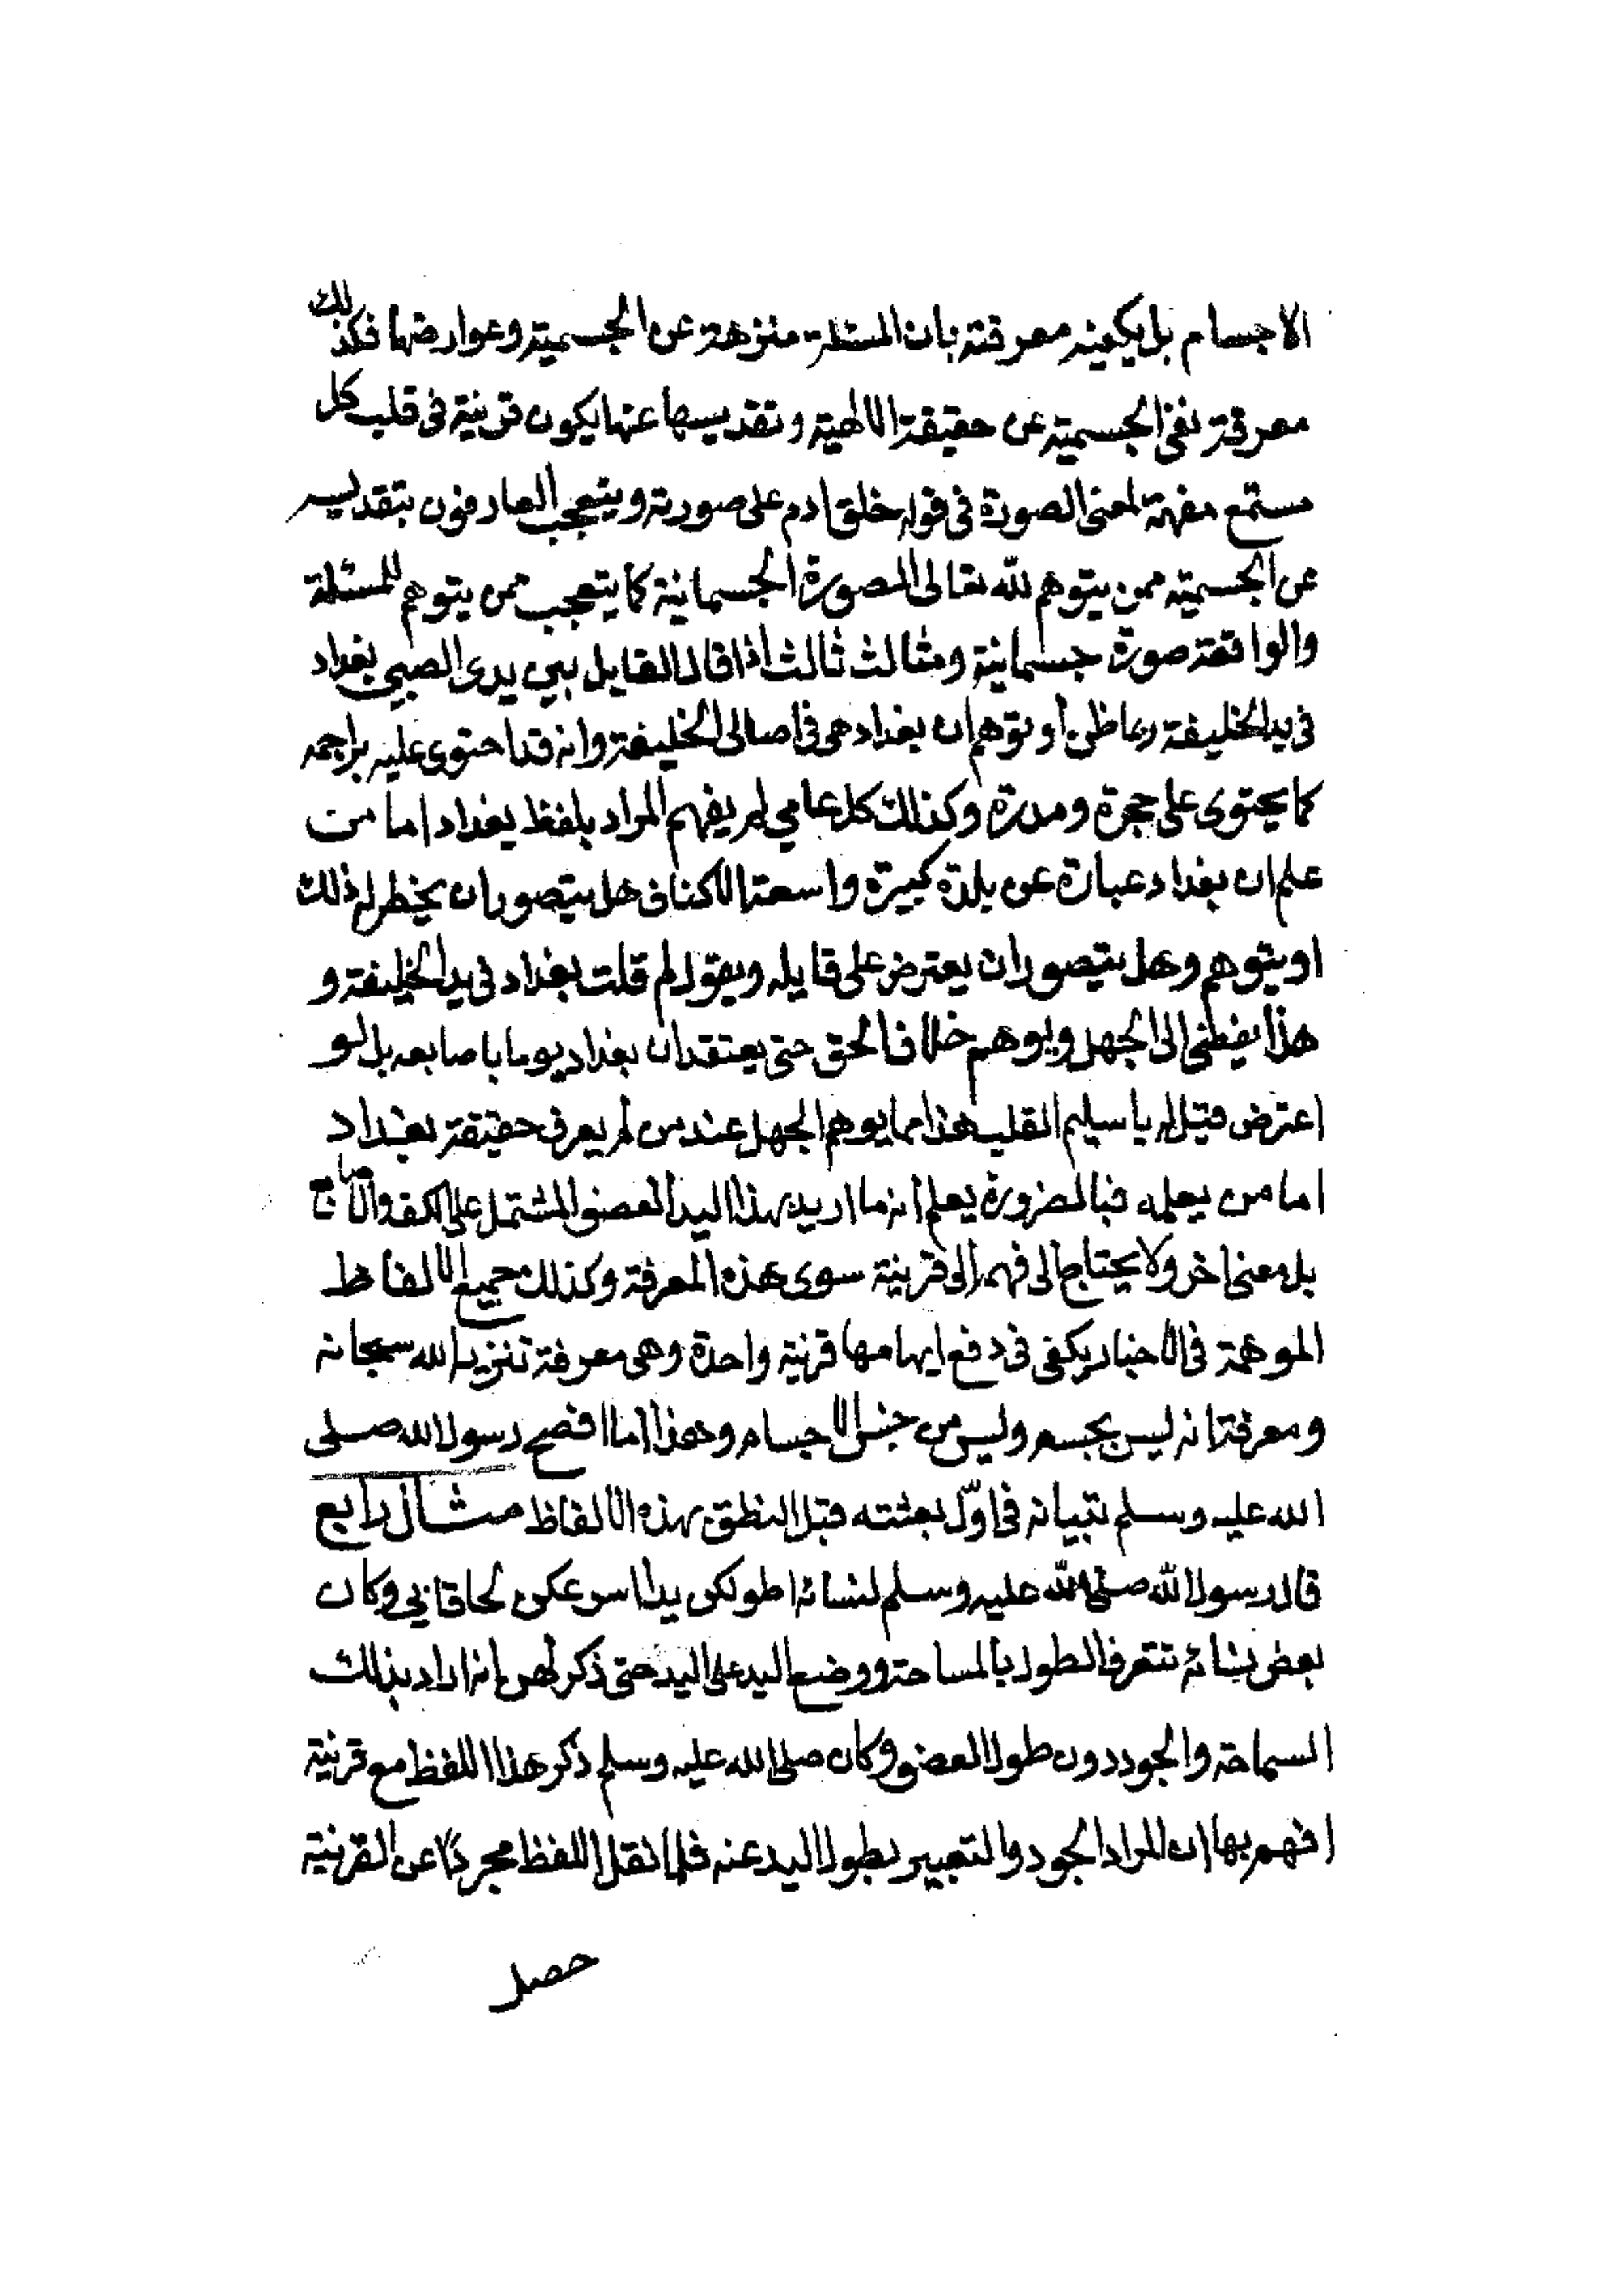 الاجسام بل يكفيه معرفته بان المسئلة منزهة عن الجسمية وعوارضها فكذلك
معرفة نفي الجسمية عن حقيقة الالهية وتقديسها عنها يكون قرينة في قلب كل
مستمع مفهمة لمعنى الصورة في قوله خلق ادم على صورته ويتعجب العارفون بتقديسه
عن الجسمية ممن يتوهم لله تعالى الصورة الجسمانية كما يتعجب ممن يتوهم للمسئلة
والواقعة صورة جسمانية ومثالث ثالث اذا قال القايل بين يدى الصبي بغداد
في يد الخليفة ربما ظن أو توهم ان بغداد هي في اصالى الخليفة وانه قد احتوى عليه براجمه
كما يحتوى على حجرة ومدرة وكذلك كل عامي لم يفهم المراد بلفظ بغداد اما من
علم ان بغداد عبارة عن بلدة كبيرة واسعة الاكناف هل يتصور ان يخطر له ذلك
او يتوهم وهل يتصور ان يعترض على قايله ويقول لم قلت بغداد في يد الخليفة و
هذا يفضى الى الجهل ويوهم خلاف الحق حتى يعتقد ان بغداد يوما باصابعه بل لو
اعترض قيل له يا سليم القلب هذا مما يوهم الجهل عند من لم يعرف حقيقة بغداد
اما من يعلمه فبالضرورة يعلم أنه ما اريد بهذا اليد العضو المشتمل على الكف والاصابع
بل معنى اخر ولا يحتاج الى فهمه الى قرينة سوى هذه المعرفة وكذلك جميع الالفاظ
الموهمة في الاخبار يكفى في دفع ايهامها قرينة واحدة وهي معرفة تنزيه الله سبحانه
ومعرفة انه ليس بجسم وليس من جنس الاجسام وهذا اما افصح رسول الله صلى
الله عليه وسلم بتبيانه في اوّل بعثته قبل النطق بهذه الالفاظ مثال رابع
قال رسول الله صلى الله عليه وسلم لنسائه اطولكن يدا اسرعكن لحاقا بي وكان
بعض نسائه تتعرف الطول بالمساحة ووضع اليد على اليد حتى ذكر لهن انه اراد بذلك
السماحة والجود دون طول العضو وكان صلى الله عليه وسلم ذكر هذا اللفظ مع قرينة
افهم بها ان المراد الجود والتعبير بطول اليد عنه فلما نقل اللفظ مجردا عن القرينة
حصل